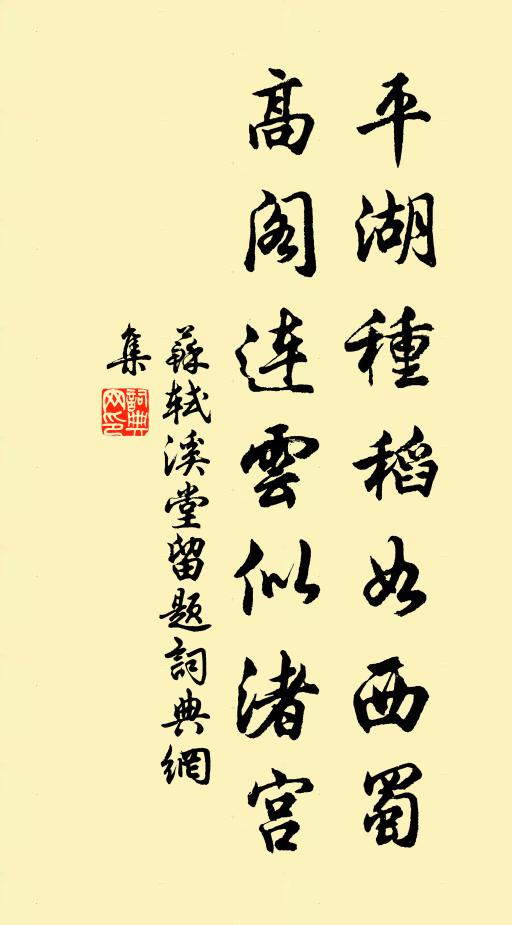 平湖種稻如西蜀
高阁连雲似渚宫
蘇軾溪堂留題詞典網
集
詞典网印